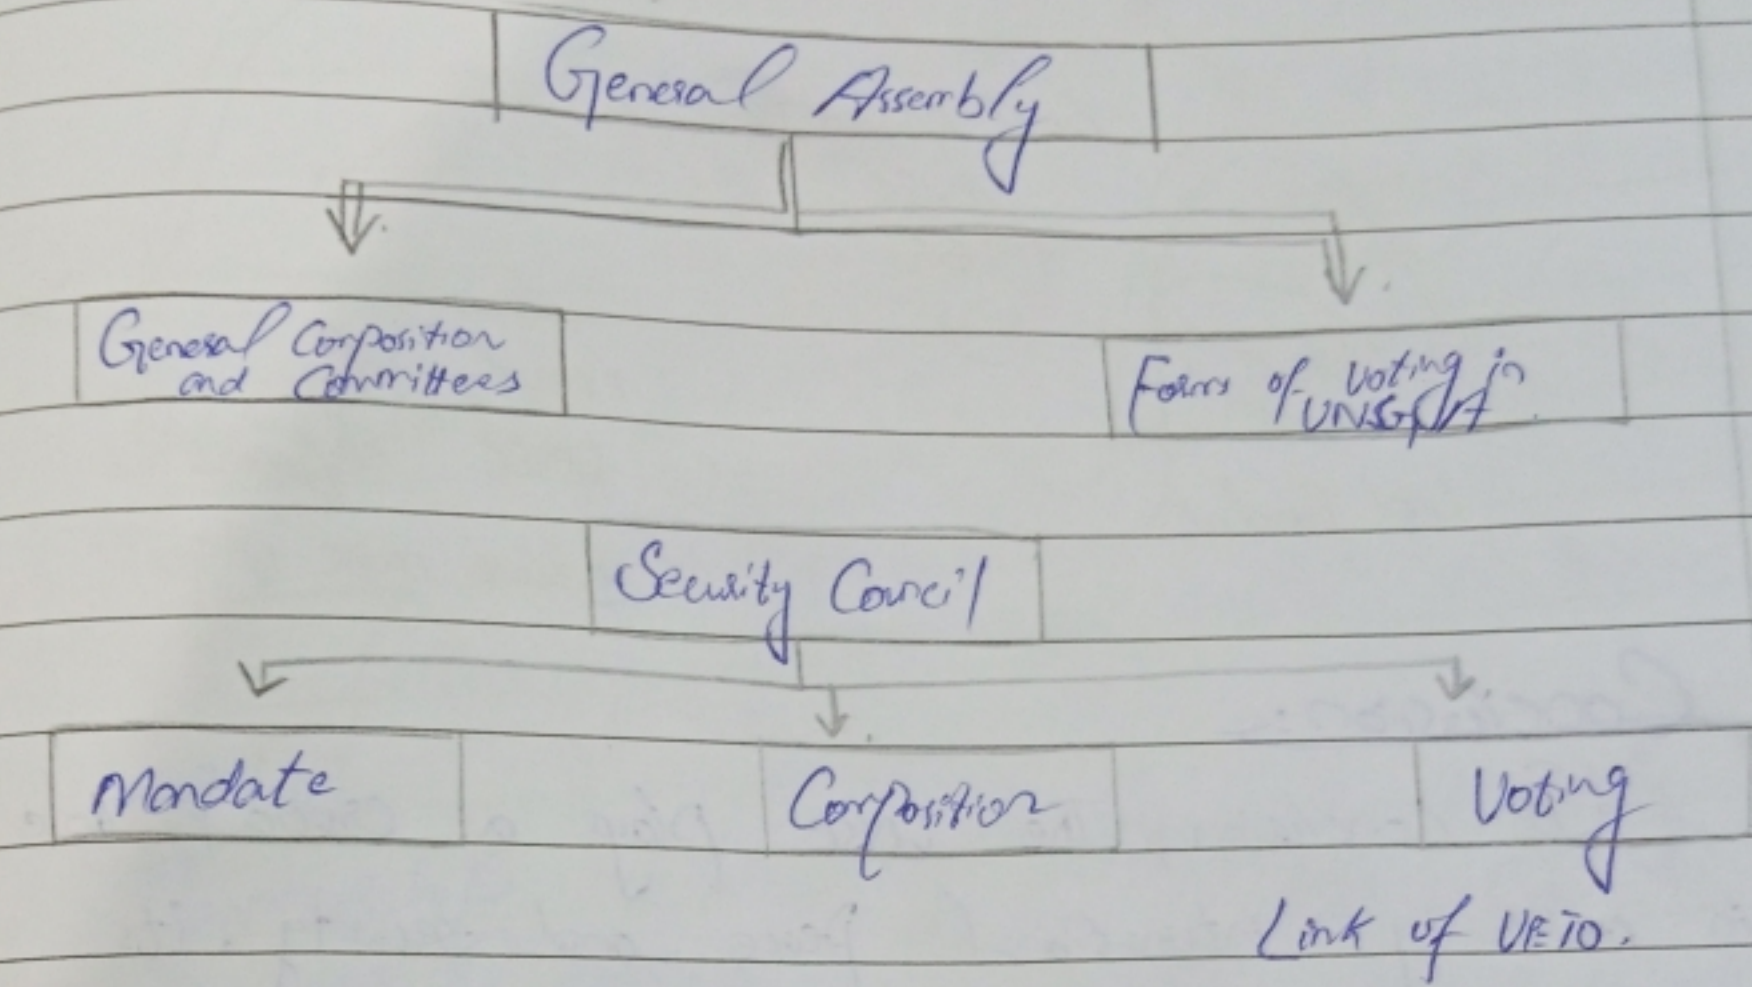 General Assembly
General Composition
and Committees
Forms of voting in
UNSG/A
Security Council
Mandate
Composition
Voting
Link of VETO.